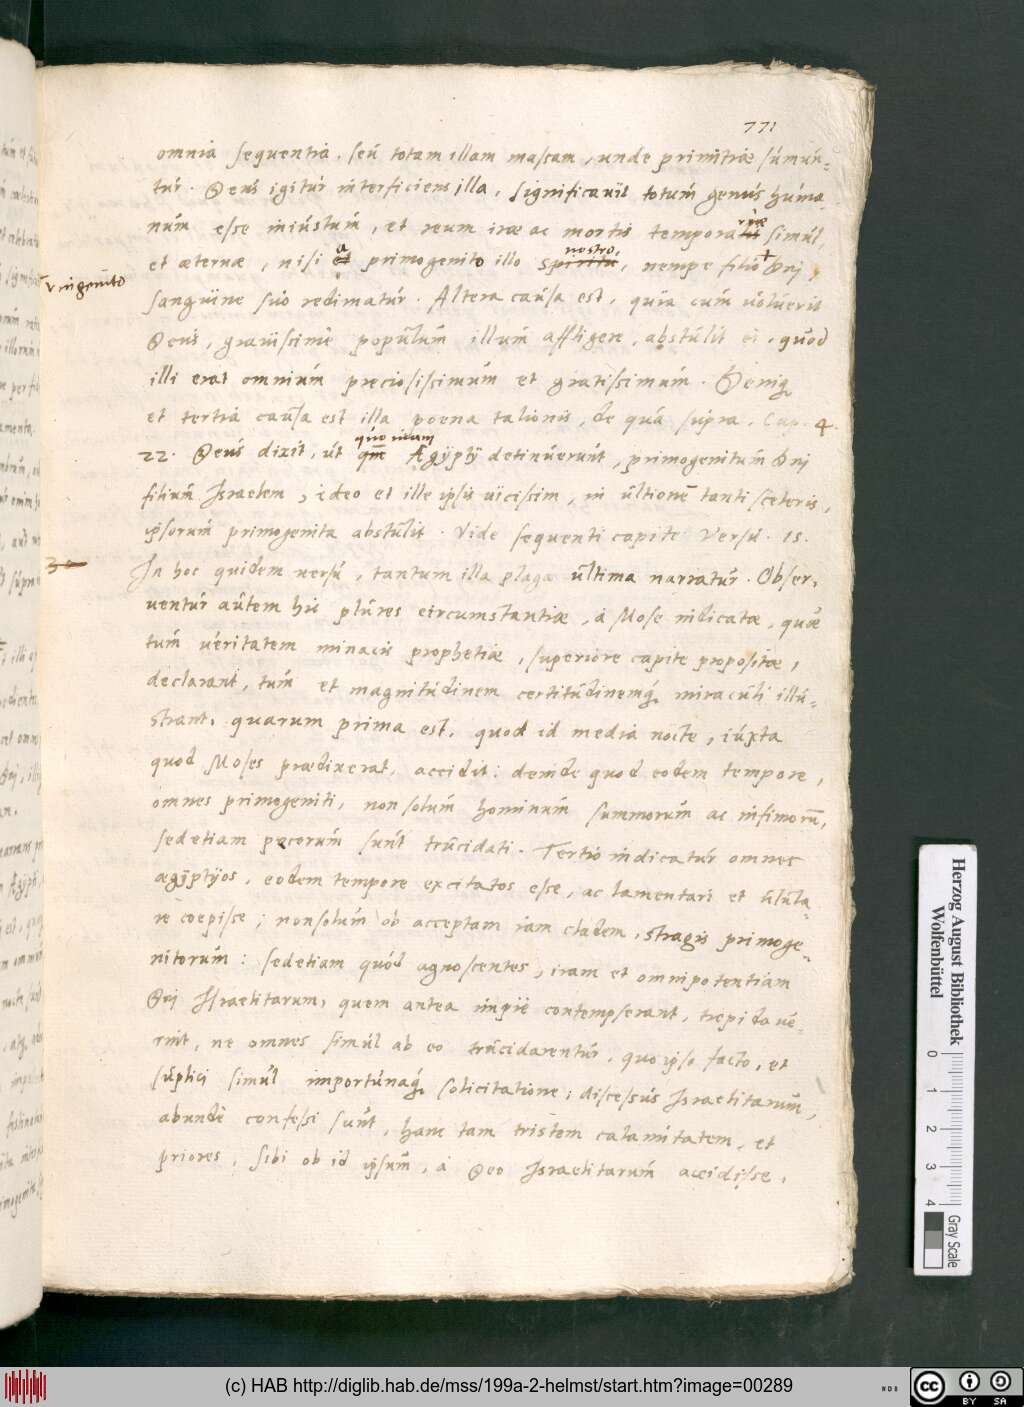 771
omnia sequentia, seu totam illam massam, unde primitiae sumun-
tur. Deus igitur interficiens illa, significavit totum genus huma-
num esse iniustum, et reum irae ac mortis temporariae simul,
et aeternae, nisi a primogenito illo nostro, nempe filio Dei
Unigenito
sanguine suo redimatur. Altera causa est, quia cum voluerit
Deus, gravissime populum illum affligere, abstulit ei, quod
illi erat omnium preciosissimum et gratissimum. Deniq
et tertia causa est illa poena talionis, de qua supra. Cap. 4.
22. Deus dixit, ut quoniam Ægyptij detinuerunt, primogenitum Dei
filium Israelem, ideo et ille ipsis vicissim, in ultionē tanti sceleris,
ipsorum primogenita abstulit. Vide sequenti capite Versu. 15.
30
In hoc quidem versu, tantum illa plaga ultima narratur. Obser,
ventur autem hic plures circumstantiae, a Mose indicatae, quae
tum veritatem minacis prophetiae, superiore capite propositae,
declarant, tum et magnitudinem certitudinemq miraculi illu-
strant, quarum prima est, quod id media nocte, iuxta
quod Moses praedixerat, accidit: deinde quod eodem tempore,
omnes primogeniti, non solum hominum summorum ac infimorū,
sed etiam pecorum sunt trucidati. Tertio indicatur omnes
ægyptijos, eodem tempore excitatos esse, ac lamentari et ululta-
re coepisse; non solum ob acceptam iam cladem, stragis primoge-
nitorum: sed etiam quod agnoscentes, iram et omnipotentiam
Dei Israelitarum, quem antea impie contempserant, trepidave-
rint, ne omnes simul ab eo trucidarentur, quo ipso facto, et
suplici simul importunaq solicitatione; discessus Israelitarum,
abunde confessi sunt, hanc tam tristem calamitatem, et
priores, sibi ob id ipsum, a Deo Israelitarum accidisse,
Herzog August Bibliothek
Wolfenbüttel
0 1 2 3 4
Gray Scale
(c) HAB http://diglib.hab.de/mss/199a-2-helmst/start.htm?image=00289
cc BY SA